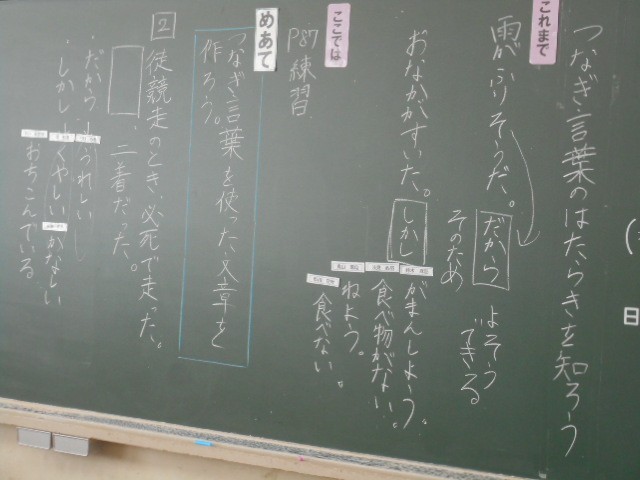 つなぎ言葉のはたらきを知ろう
これまで
雨がふりそうだ。
だから
そのため
よそう
できる
おなかがすいた。
しかし
がまんしよう。
食べ物がない。
ねよう。
食べない。
ここでは
P87練習
めあて
つなぎ言葉を使った文章を
作ろう。
2
徒競走のとき、必死で走った。
、二着だった。
・だから
うれしい
・しかし
くやしい
かなしい
おちこんでいる
日